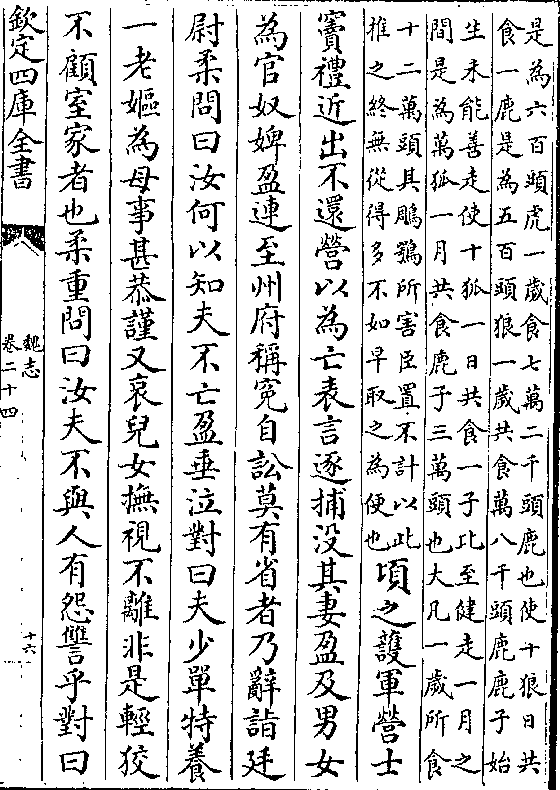 是為六百頭虎一歲食七萬二千頭鹿也使十狼日共
食一鹿是為五百頭狼一歲共食萬八千頭鹿鹿子始
生未能善走使十狐一日共食一子比至健走一月之
間是為萬狐一月共食鹿子三萬頭也大凡一歲所食
十二萬頭其鵰鶚所害臣置不計以此
推之終無從得多不如早取之為便也
頃之護軍營士
竇禮近出不還營以為亡表言逐捕沒其妻盈及男女
為官奴婢盈連至州府稱冤自訟莫有省者乃辭詣廷
尉柔問曰汝何以知夫不亡盈垂泣對曰夫少單特養
一老嫗為母事甚恭謹又哀兒女撫視不離非是輕狡
不顧室家者也柔重問曰汝夫不與人有怨讐乎對曰
欽定四庫全書
魏志
卷二十四
十六